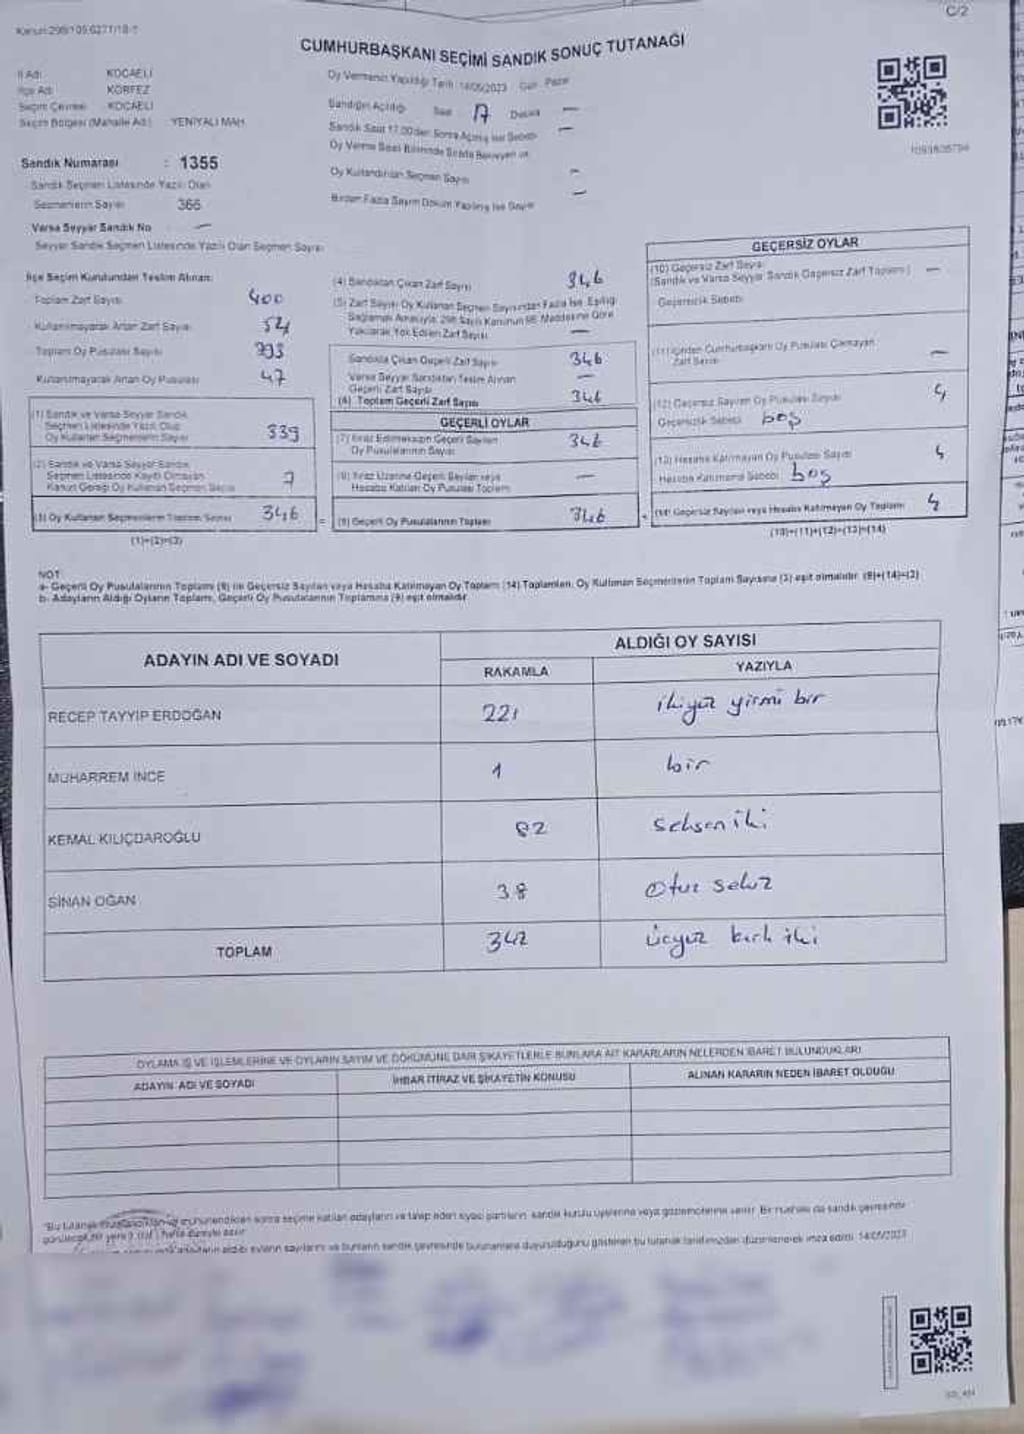 Kanun 298/105,6271/18-1
C/2
CUMHURBAŞKANI SEÇİMİ SANDIK SONUÇ TUTANAĞI
İl Adı KOCAELİ
İlçe Adı KÖRFEZ
Seçim Çevresi KOCAELİ
Seçim Bölgesi (Mahalle Adı) YENİYALI MAH.
Oy Vermenin Yapıldığı Tarih 14/05/2023 Gün Pazar
Sandığın Açıldığı Saat 17 Dakika —
Sandık Saat 17.00'den Sonra Açılmış İse Sebebi —
Oy Verme Saati Bitiminde Sırada Bekleyen ve
Oy Kullandırılan Seçmen Sayısı —
Birden Fazla Sayım Döküm Yapılmış İse Sayısı —
Sandık Numarası : 1355
Sandık Seçmen Listesinde Yazılı Olan
Seçmenlerin Sayısı 366
Varsa Seyyar Sandık No —
Seyyar Sandık Seçmen Listesinde Yazılı Olan Seçmen Sayısı
İlçe Seçim Kurulundan Teslim Alınan:
Toplam Zarf Sayısı 400
Kullanılmayarak Artan Zarf Sayısı 54
Toplam Oy Pusulası Sayısı 393
Kullanılmayarak Artan Oy Pusulası 47
(1) Sandık ve Varsa Seyyar Sandık
Seçmen Listesinde Yazılı Olup
Oy Kullanan Seçmenlerin Sayısı 339
(2) Sandık ve Varsa Seyyar Sandık
Seçmen Listesinde Kayıtlı Olmayan
Kanun Gereği Oy Kullanan Seçmen Sayısı 7
(3) Oy Kullanan Seçmenlerin Toplam Sayısı 346
(1)+(2)=(3)
(4) Sandıktan Çıkan Zarf Sayısı 346
(5) Zarf Sayısı Oy Kullanan Seçmen Sayısından Fazla İse, Eşitliği
Sağlamak Amacıyla, 298 Sayılı Kanunun 98. Maddesine Göre
Yakılarak Yok Edilen Zarf Sayısı —
Sandıkta Çıkan Geçerli Zarf Sayısı 346
Varsa Seyyar Sandıktan Teslim Alınan
Geçerli Zarf Sayısı —
(6) Toplam Geçerli Zarf Sayısı 346
GEÇERLİ OYLAR
(7) İtiraz Edilmeksizin Geçerli Sayılan
Oy Pusulalarının Sayısı 346
(8) İtiraz Üzerine Geçerli Sayılan veya
Hesaba Katılan Oy Pusulası Toplamı —
(9) Geçerli Oy Pusulalarının Toplamı 346
GEÇERSİZ OYLAR
(10) Geçersiz Zarf Sayısı
(Sandık ve Varsa Seyyar Sandık Geçersiz Zarf Toplamı) —
Geçersizlik Sebebi
(11) İçinden Cumhurbaşkanı Oy Pusulası Çıkmayan
Zarf Sayısı —
(12) Geçersiz Sayılan Oy Pusulası Sayısı 4
Geçersizlik Sebebi boş
(13) Hesaba Katılmayan Oy Pusulası Sayısı 4
Hesaba Katılmama Sebebi boş
(14) Geçersiz Sayılan veya Hesaba Katılmayan Oy Toplamı 4
(10)+(11)+(12)+(13)=(14)
NOT:
a- Geçerli Oy Pusulalarının Toplamı (9) ile Geçersiz Sayılan veya Hesaba Katılmayan Oy Toplamı (14) Toplamları, Oy Kullanan Seçmenlerin Toplam Sayısına (3) eşit olmalıdır. (9)+(14)=(3)
b- Adayların Aldığı Oyların Toplamı, Geçerli Oy Pusulalarının Toplamına (9) eşit olmalıdır.
ADAYIN ADI VE SOYADI ALDIĞI OY SAYISI
RAKAMLA YAZIYLA
RECEP TAYYIP ERDOĞAN 221 ikiyüz yirmi bir
MUHARREM İNCE 1 bir
KEMAL KILIÇDAROĞLU 82 seksen iki
SİNAN OĞAN 38 otuz sekiz
TOPLAM 342 üçyüz kırk iki
OYLAMA İŞ VE İŞLEMLERİNE VE OYLARIN SAYIM VE DÖKÜMÜNE DAİR ŞİKAYETLERLE BUNLARA AİT KARARLARIN NELERDEN İBARET BULUNDUKLARI
ADAYIN ADI VE SOYADI İHBAR İTİRAZ VE ŞİKAYETİN KONUSU ALINAN KARARIN NEDEN İBARET OLDUĞU